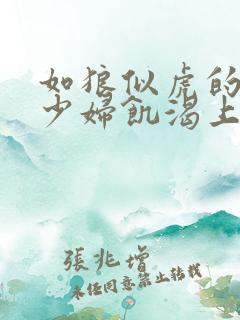 如狼似虎的
少婦飢渴上
張兆增
未经同意禁止转载